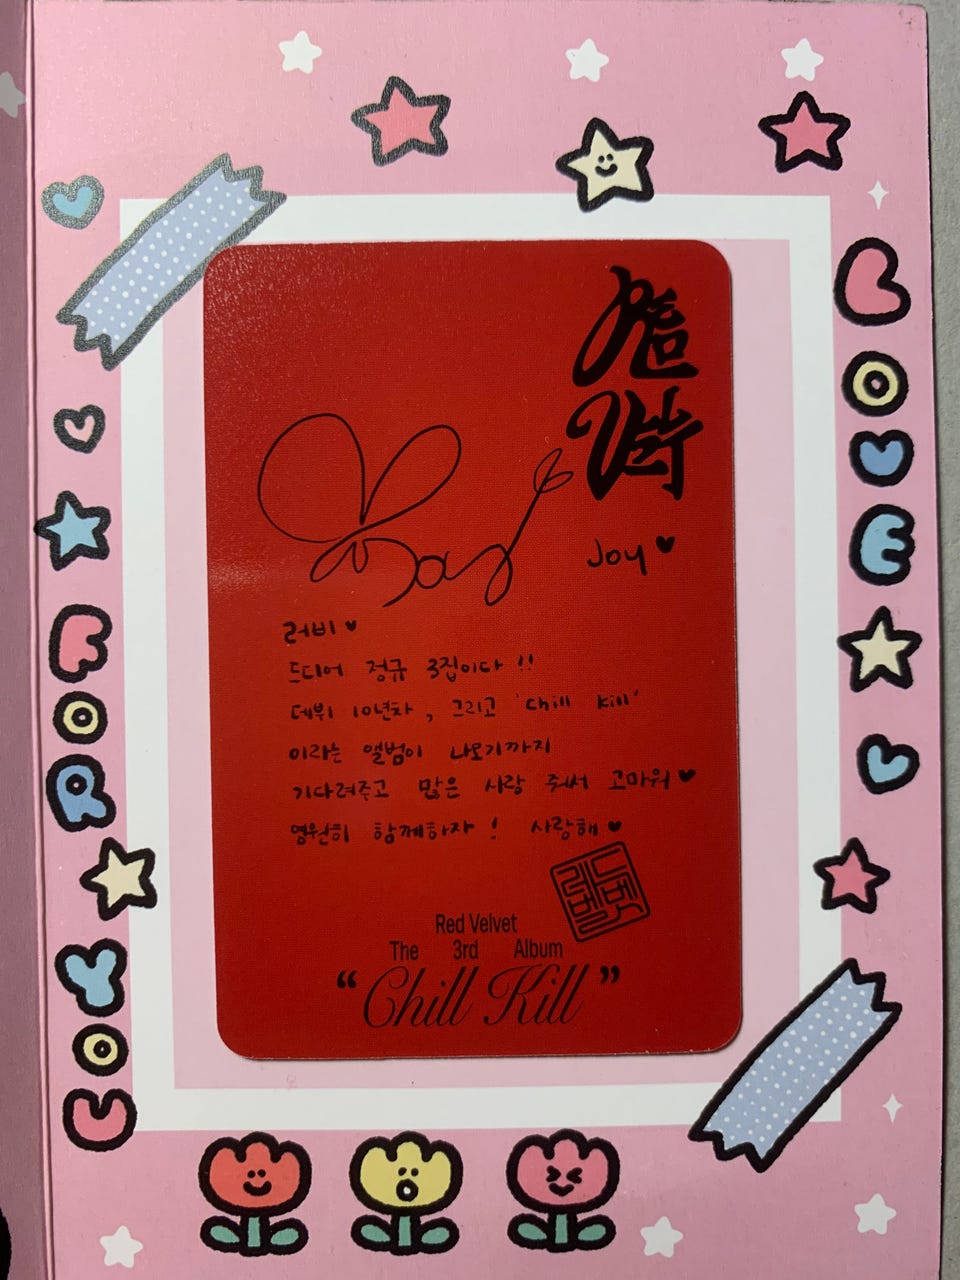 Joy ♥
러비 ♥
드디어 정규 3집이다 !!
데뷔 10년차, 그리고 'Chill Kill'
이라는 앨범이 나오기까지
기다려주고 많은 사랑 줘서 고마워 ♥
영원히 함께하자 ! 사랑해 ♥
레드
벨벳
Red Velvet
The 3rd Album
“Chill Kill”
FOR
YOU
LOVE